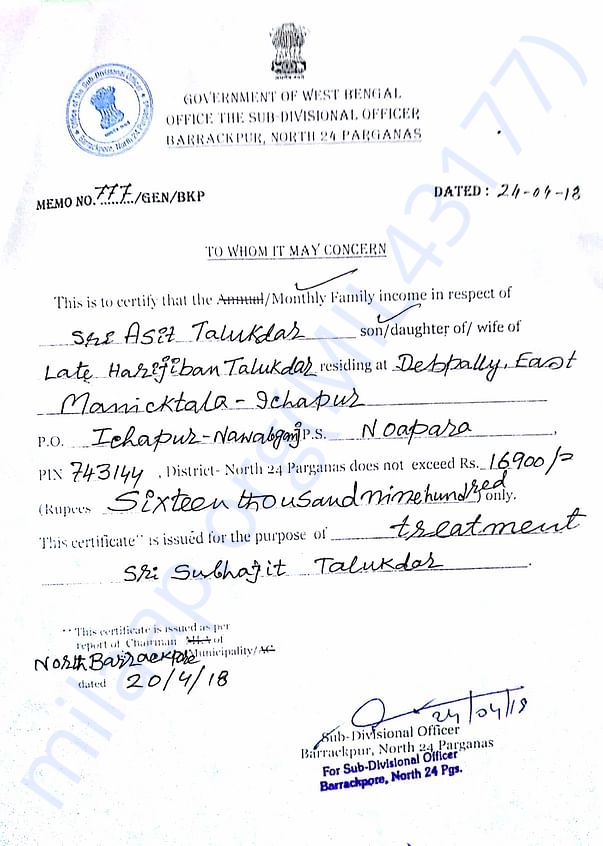 Office of the Sub-Divisional Officer
Barrackpore, North 24 Parganas
GOVERNMENT OF WEST BENGAL
OFFICE THE SUB-DIVISIONAL OFFICER
BARRACKPUR, NORTH 24 PARGANAS
MEMO NO. 777/GEN/BKP DATED : 24-04-18
TO WHOM IT MAY CONCERN
This is to certify that the Annual/Monthly Family income in respect of
Sri Asit Talukdar son/daughter of/ wife of
Late Harijiban Talukdar residing at Debpally, East
Manicktala - Ichapur
P.O. Ichapur-Nawabganj P.S. Noapara,
PIN 743144, District- North 24 Parganas does not exceed Rs. 16900/=
(Rupees Sixteen thousand nine hundred only.
This certificate** is issued for the purpose of treatment
Sri Subhajit Talukdar.
**This certificate is issued as per
report of Chairman MLA of
North Barrackpore Municipality/AC
dated 20/4/18
24/04/18
Sub-Divisional Officer
Barrackpur, North 24 Parganas
For Sub-Divisional Officer
Barrackpore, North 24 Pgs.
milaap.org(MIL43177)